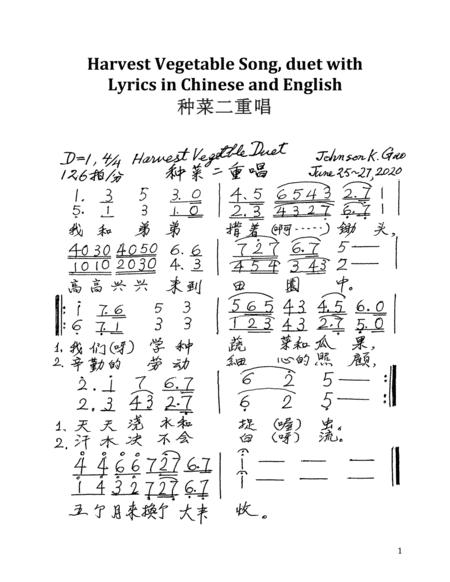 Harvest Vegetable Song, duet with
Lyrics in Chinese and English
种菜二重唱
D=1, 4/4 Harvest Vegetble Duet Johnson K. Gao
126拍/分 种菜二重唱 June 25~27, 2020
1. 3 5 3. 0 | 4. 5 6543 2.7 1 |
5. 1 3 1. 0 | 2.3 4327 6.7 1 |
我和弟弟 揹着(啊·····)锄头,
4030 4050 6. 6 | 7 2 7 6.7 5 — |
1010 2030 4. 3 | 4 5 4 3 43 2 — |
高高兴兴来到 田园中。
‖: 1 7.6 5 3 | 5 6 5 43 4.5 6.0 |
‖: 6 7.1 3 3 | 1 2 3 43 2.7 5.0 |
1. 我们(呀)学种 蔬菜和瓜果,
2. 辛勤的劳动 细心的照顾,
2. 1 7 6.7 | 6 2 5 — :‖
2. 3 43 2.7 | 6 2 5 — :‖
1. 天天浇水和 捉(喔)虫。
2. 汗水决不会 白(呀)流。
4 4 6 6 7 2 7 6.7 | 1 — — — ‖
1 4 3 2 7 2 7 6.7 | 1 — — — ‖
五个月来换了大丰收。
1